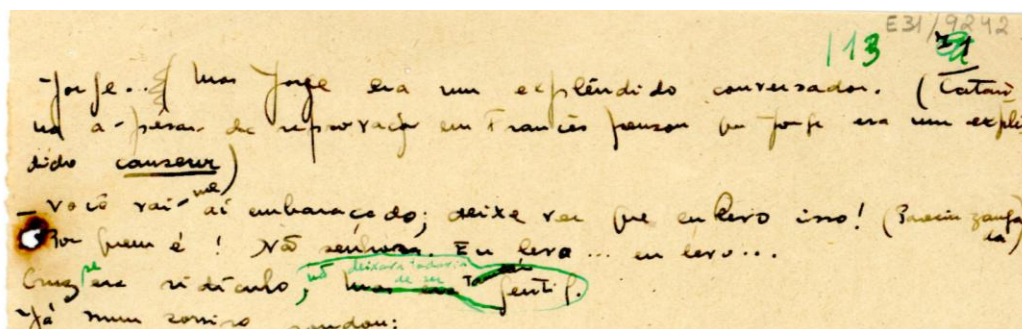 E31/9242
113
Jorge... Mas Jorge era um explêndido conversador. (Catari
na a-pesar da reprovação em Francês pensou que Jorge era um explê
dido causeur)
— Você vai-me aí embaraçado; deixe ver que eu levo isso! (Parecia zanga
da)
Por quem é! Não senhora. Eu levo... eu levo...
deixara todavia
de ser
era ridículo, mas era gentil.
Já num sorriso